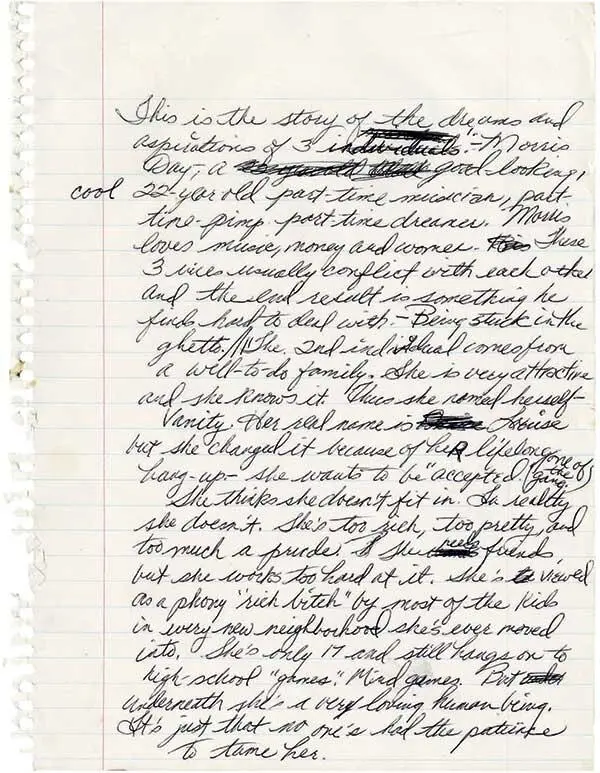 This is the story of the dreams and
aspirations of 3 individuals:- Morris
Day,- a good-looking,
cool 22-year old part-time musician, part
time-pimp part-time dreamer. Morris
loves music, money and women. These
3 vices usually conflict with each other
and the end result is something he
finds hard to deal with:- Being stuck in the
ghetto. // The 2nd individual comes from
a well-to-do family. She is very attractive
and she knows it. Thus she named herself-
Vanity. Her real name is Louise
but she changed it because of heR lifelong
hang-up:- she wants to be "accepted (one of
the gang)
She thinks she doesn't fit in. In reality
she doesn't. She's too rich, too pretty, and
too much a prude. She needs friends
but she works too hard at it. She's viewed
as a phony "rich bitch" by most of the kids
in every new neighborhood she's ever moved
into. She's only 17 and still hangs on to
high-school "games" Mind games. But
underneath she's a very loving human being.
It's just that no one's had the patience
to tame her.